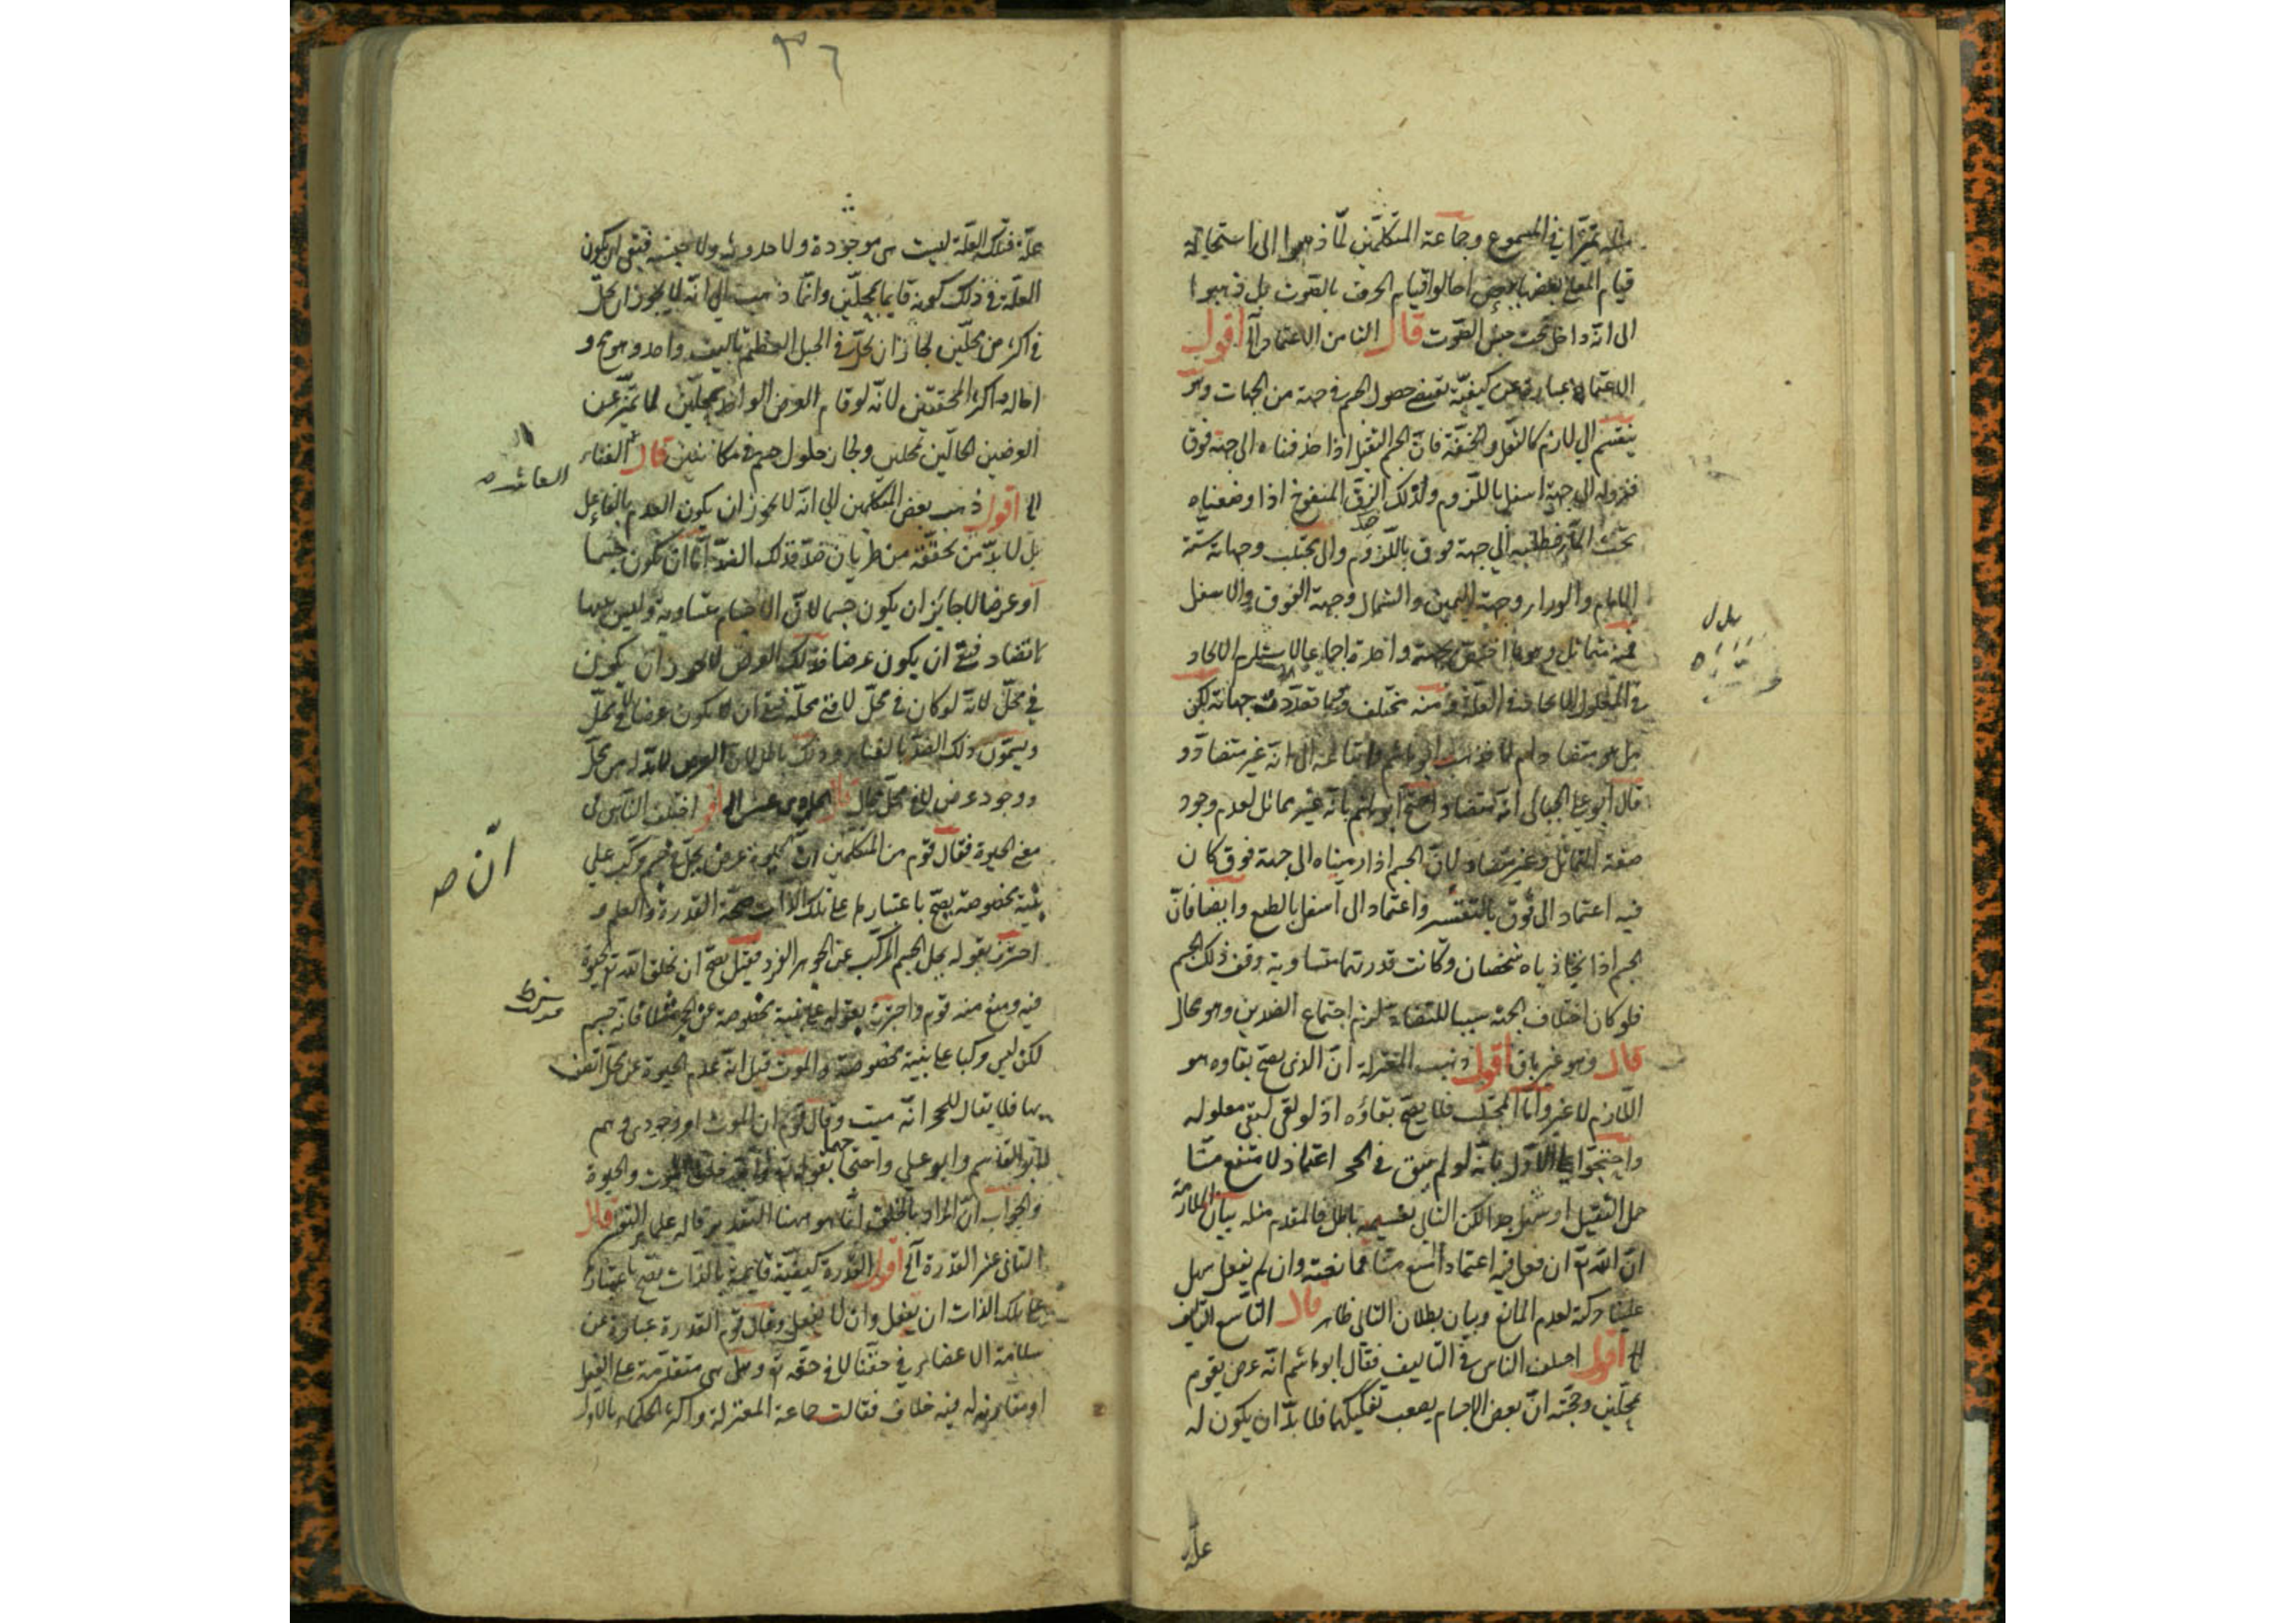 تميزا في المسموع وجماعة المتكلمين لما ذهبوا الى استحالة
قيام المعنى بعضها ببعض احالوا قيام الحرف بالصوت بل ذهبوا
الى انه داخل تحت جنس الصوت قال الثامن الاعتماد الخ اقول
الاعتماد عبارة عن كيفية تقتضي حصول الجسم في جهة من الجهات وهو
ينقسم الى لازم كالثقل والخفة فان الجسم الثقيل اذا حذفناه الى جهة فوق
فنزوله الى جهة اسفل باللزوم وكذلك الزق المنفوخ اذا وضعناه
تحت الماء فطلبه الى جهة فوق باللزوم والى مجتلب وجهاته ستة
الامام والوراء وجهة اليمين والشمال وجهة الفوق والاسفل
فمنه متماثل وهو ما اختص بجهة واحدة اجماعا لاستلزام الاتحاد
في المعلول الاتحاد في العلة ومنه مختلف وهو ما تعددت جهاته لكن
هل هو متضاد ام لا فذهب ابو هاشم واتباعه الى انه غير متضاد و
قال ابو علي الجبائي انه متضاد واحتج ابو هاشم بانه غير مماثل لعدم وجود
صفة التماثل وغير متضاد لان الجسم اذا رميناه الى جهة فوق كان
فيه اعتماد الى فوق بالقسر واعتماد الى اسفل بالطبع وايضا فان
الجسم اذا تجاذباه شخصان وكانت قدرتهما متساوية وقف ذلك الجسم
فلو كان اختلاف الجهة سببا للتضاد لزم اجتماع الضدين وهو محال
قال وهو غير باق اقول ذهب المعتزلة ان الذي يصح بقاوه هو
اللازم لا غير واما المجتلب فلا يصح بقاؤه اذ لو بقي لبقي معلوله
واحتجوا على الاول بانه لو لم يبق في الحجر اعتماد لامتنع منا
حمل الثقيل او سهل جدا لكن التالي بقسميه باطل فالمقدم مثله بيان الملازمة
ان الله تع ان فعل فيه اعتمادا امتنع منا ممانعته وان لم يفعل سهل
علينا حركته لعدم المانع وبيان بطلان التالي ظاهر قال التاسع التاليف
الخ اقول اختلف الناس في التاليف فقال ابو هاشم انه عرض يقوم
بمحلين وحجته ان بعض الاجسام يصعب تفكيكها فلا بد ان يكون له
علة
٣٦
علة فتلك العلة ليست هي موجودة ولا حدوثه ولا جنسه فبقى ان يكون
العلة في ذلك كونه قايما بمحلين وانما ذهب الى انه لا يجوز ان يحل
في اكثر من محلين لجاز ان يحل في الجبل العظيم تاليف واحد وهو مح و
احاله اكثر المحققين لانه لو قام العرض الواحد بمحلين لما تميز عن
العرضين الحالين بمحلين ولجاز حلول جسم في مكانين قال الفناء
العاشر صه
الخ اقول ذهب بعض المتكلمين الى انه لا يجوز ان يكون العدم بالفاعل
بل لا بد من تحققه من طريان ضد فذلك الضد اما ان يكون جسما
او عرضا لا جائز ان يكون جسما لان الاجسام متساوية وليس بينها
تضاد فبقي ان يكون عرضا فذلك العرض لا يجوز ان يكون
في محل لانه لو كان في محل لافني محله فبقي ان يكون عرضا لا في محل
ويسمون ذلك الضد بالفناء وذلك باطل لان العرض لا بد له من محل
ووجود عرض لا في محل محال قال الحادي عشر الخ اقول اختلف الناس في
معنى الحيوة فقال قوم من المتكلمين ان الحيوة عرض يحل في جسم مركب على
انّ صه
بنية مخصوصة يصح باعتبارها على تلك الذات صحة القدرة والعلم و
احترز بقوله يحل الجسم المركب عن الجوهر الفرد فقيل يصح ان يخلق الله تع الحيوة
فيه ومنع منه قوم واحترز بقوله على بنية مخصوصة عن الحجر مثلا فانه جسم
لكن ليس مركبا على بنية مخصوصة والموت قيل انه عدم الحيوة عن محل اتصف
بها فلا يقال للحجر انه ميت وقال قوم ان الموت امر وجودي وهم
ابو القاسم وابو علي واحتجا بقوله تع الذي خلق الموت والحيوة
والجواب ان المراد بالخلق انما هو هيهنا التقدير قال
الثاني عشر القدرة الخ اقول القدرة كيفية قايمة بالذات يصح باعتبارها
على تلك الذات ان يفعل وان لا يفعل وقال قوم القدرة عبارة عن
سلامة الاعضاء في حقنا لا في حقه تع وهل هي متقدمة على الفعل
او مقارنة له فيه خلاف فقالت جماعة المعتزلة واكثر الحكماء بالاول